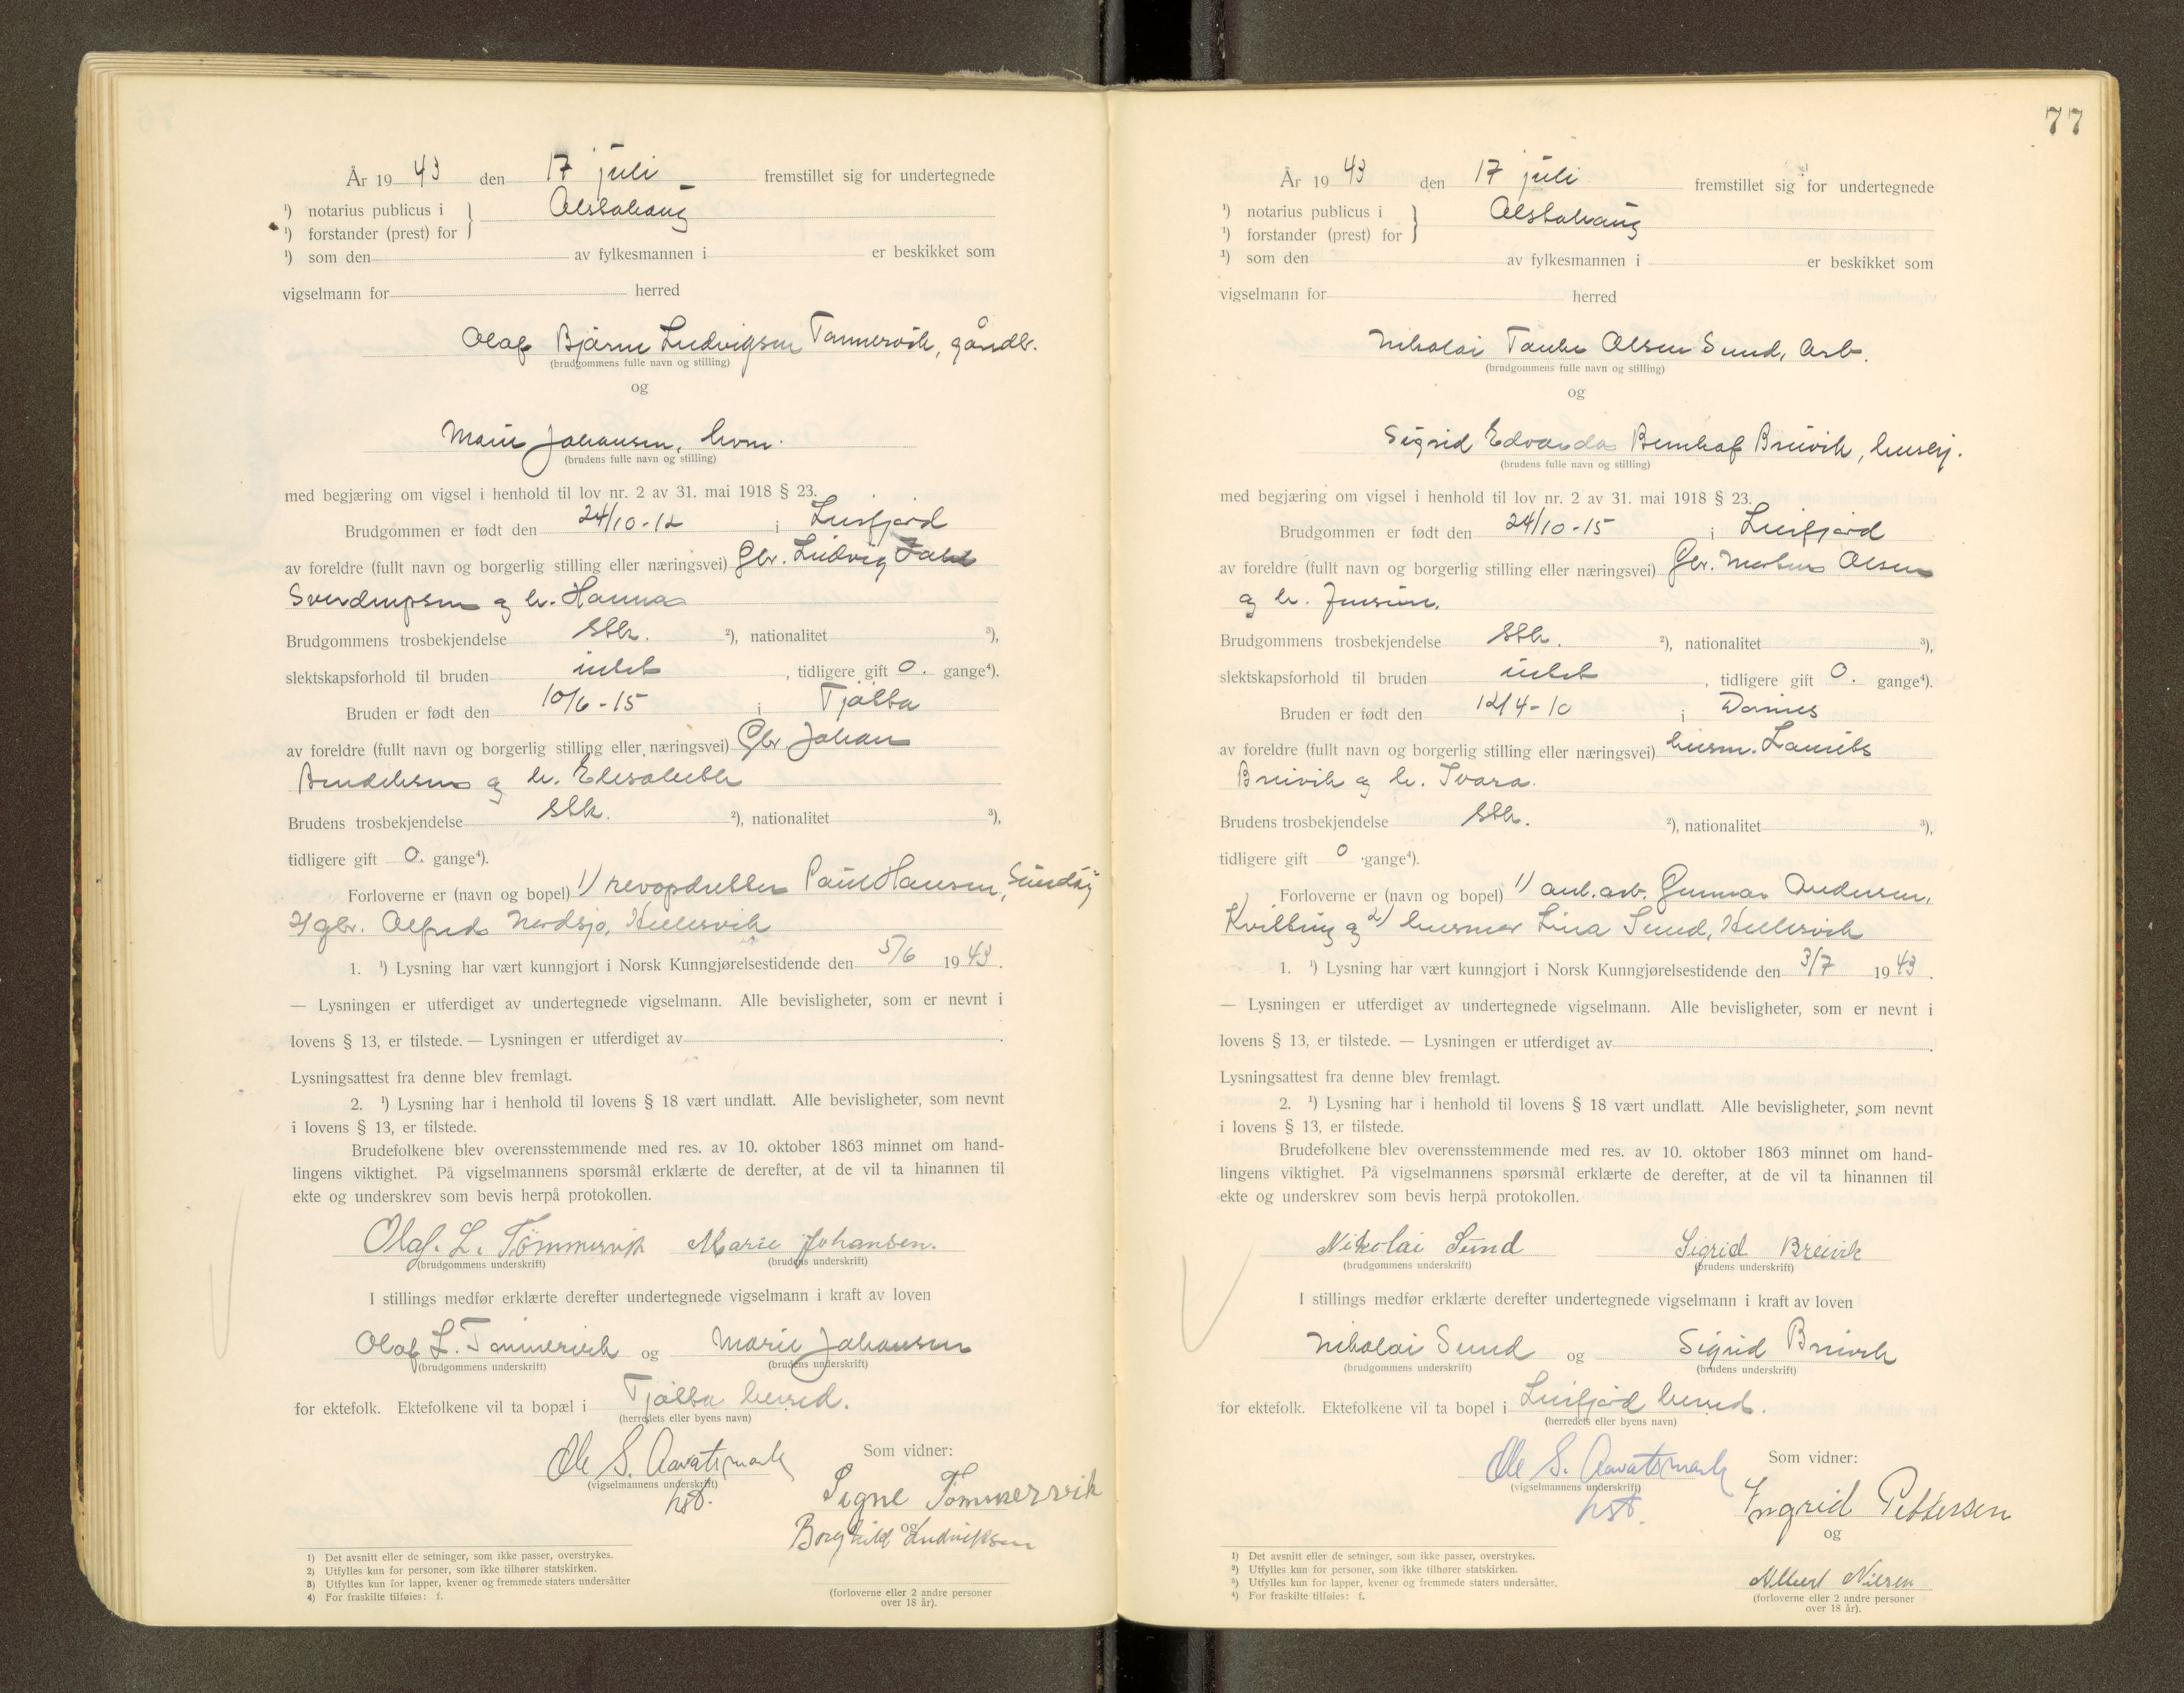 År 19 43 den 17 juli fremstillet sig for undertegnede
¹) notarius publicus i } Alstahaug
¹) forstander (prest) for
¹) som den av fylkesmannen i er beskikket som
vigselmann for herred
Olaf Bjarne Ludvigsen Tømmervik, gårdbr.
(brudgommens fulle navn og stilling)
og
Marie Johansen, hvm.
(brudens fulle navn og stilling)
med begjæring om vigsel i henhold til lov nr. 2 av 31. mai 1918 § 23.
Brudgommen er født den 24/10-12 i Leirfjord
av foreldre (fullt navn og borgerlig stilling eller næringsvei) Gbr. Ludvig
Sverdrupsen og h. Hanna
Brudgommens trosbekjendelse stk. ²), nationalitet ³),
slektskapsforhold til bruden intet, tidligere gift 0. gange⁴).
Bruden er født den 10/6-15 i Tjøtta
av foreldre (fullt navn og borgerlig stilling eller næringsvei) Gbr Johan
Bendiksen og h. Elisabeth
Brudens trosbekjendelse stk. ²), nationalitet ³),
tidligere gift 0. gange⁴).
Forloverne er (navn og bopel) 1) revopdretter Paul Hansen, Sundøy
2) gbr. Alfred Nordsjø, Hellesvik
1. ¹) Lysning har vært kunngjort i Norsk Kunngjørelsestidende den 5/6 19 43.
— Lysningen er utferdiget av undertegnede vigselmann. Alle bevisligheter, som er nevnt i
lovens § 13, er tilstede. — Lysningen er utferdiget av .
Lysningsattest fra denne blev fremlagt.
2. ¹) Lysning har i henhold til lovens § 18 vært undlatt. Alle bevisligheter, som nevnt
i lovens § 13, er tilstede.
Brudefolkene blev overensstemmende med res. av 10. oktober 1863 minnet om hand-
lingens viktighet. På vigselmannens spørsmål erklærte de derefter, at de vil ta hinannen til
ekte og underskrev som bevis herpå protokollen.
Olaf. L. Tömmervik Marie Johansen.
(brudgommens underskrift) (brudens underskrift)
I stillings medfør erklærte derefter undertegnede vigselmann i kraft av loven
Olaf L. Tømmervik og Marie Johansen
(brudgommens underskrift) (brudens underskrift)
for ektefolk. Ektefolkene vil ta bopæl i Tjøtta herred.
(herredets eller byens navn)
Ole S. Aavatsmark Som vidner:
(vigselmannens underskrift)
hst. Signe Tømmervik
og
Borghild Ludvigsen
1) Det avsnitt eller de setninger, som ikke passer, overstrykes.
2) Utfylles kun for personer, som ikke tilhører statskirken.
3) Utfylles kun for lapper, kvener og fremmede staters undersåtter
4) For fraskilte tilføies: f.
(forloverne eller 2 andre personer
over 18 år).
77
År 19 43 den 17 juli fremstillet sig for undertegnede
¹) notarius publicus i } Alstahaug
¹) forstander (prest) for
¹) som den av fylkesmannen i er beskikket som
vigselmann for herred
Nikolai Olsen Sund, arb.
(brudgommens fulle navn og stilling)
og
Sigrid Edvarda Breivik,
(brudens fulle navn og stilling)
med begjæring om vigsel i henhold til lov nr. 2 av 31. mai 1918 § 23.
Brudgommen er født den 24/10-15 i Leirfjord
av foreldre (fullt navn og borgerlig stilling eller næringsvei) Gbr. Olsen
og h. Jensine.
Brudgommens trosbekjendelse stk. ²), nationalitet ³),
slektskapsforhold til bruden intet, tidligere gift 0. gange⁴).
Bruden er født den 12/4-10 i Dønnes
av foreldre (fullt navn og borgerlig stilling eller næringsvei) husm. Laurits
Breivik og h. Ivara.
Brudens trosbekjendelse stk. ²), nationalitet ³),
tidligere gift 0 gange⁴).
Forloverne er (navn og bopel) 1) anl.arb. Gunnar Andersen,
Kvitting og 2) husmor Lina Sund, Hellesvik
1. ¹) Lysning har vært kunngjort i Norsk Kunngjørelsestidende den 3/7 19 43.
— Lysningen er utferdiget av undertegnede vigselmann. Alle bevisligheter, som er nevnt i
lovens § 13, er tilstede. — Lysningen er utferdiget av .
Lysningsattest fra denne blev fremlagt.
2. ¹) Lysning har i henhold til lovens § 18 vært undlatt. Alle bevisligheter, som nevnt
i lovens § 13, er tilstede.
Brudefolkene blev overensstemmende med res. av 10. oktober 1863 minnet om hand-
lingens viktighet. På vigselmannens spørsmål erklærte de derefter, at de vil ta hinannen til
ekte og underskrev som bevis herpå protokollen.
Nikolai Sund Sigrid Breivik
(brudgommens underskrift) (brudens underskrift)
I stillings medfør erklærte derefter undertegnede vigselmann i kraft av loven
Nikolai Sund og Sigrid Breivik
(brudgommens underskrift) (brudens underskrift)
for ektefolk. Ektefolkene vil ta bopel i Leirfjord herred.
(herredets eller byens navn)
Ole S. Aavatsmark Som vidner:
(vigselmannens underskrift)
hst. Ingrid Pettersen
og
Albert Nilsen
1) Det avsnitt eller de setninger, som ikke passer, overstrykes.
2) Utfylles kun for personer, som ikke tilhører statskirken.
3) Utfylles kun for lapper, kvener og fremmede staters undersåtter.
4) For fraskilte tilføies: f.
(forloverne eller 2 andre personer
over 18 år).